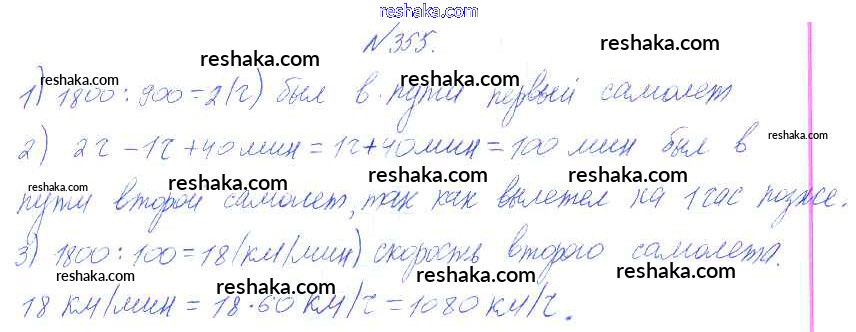 www.reshaka.com
№355.
reshaka.com reshaka.com
reshaka.com reshaka.com
1) 1800:900=2(ч) был в пути первый самолет
reshaka.com reshaka.com reshaka.com
2) 2ч-1ч+40мин=1ч+40мин=100 мин был в
reshaka.com reshaka.com reshaka.com
пути второй самолет, так как вылетел на 1 час позже.
reshaka.com reshaka.com
3) 1800:100=18(км/мин) скорость второго самолета.
reshaka.com reshaka.com reshaka.com
18 км/мин = 18·60 км/ч = 1080 км/ч.